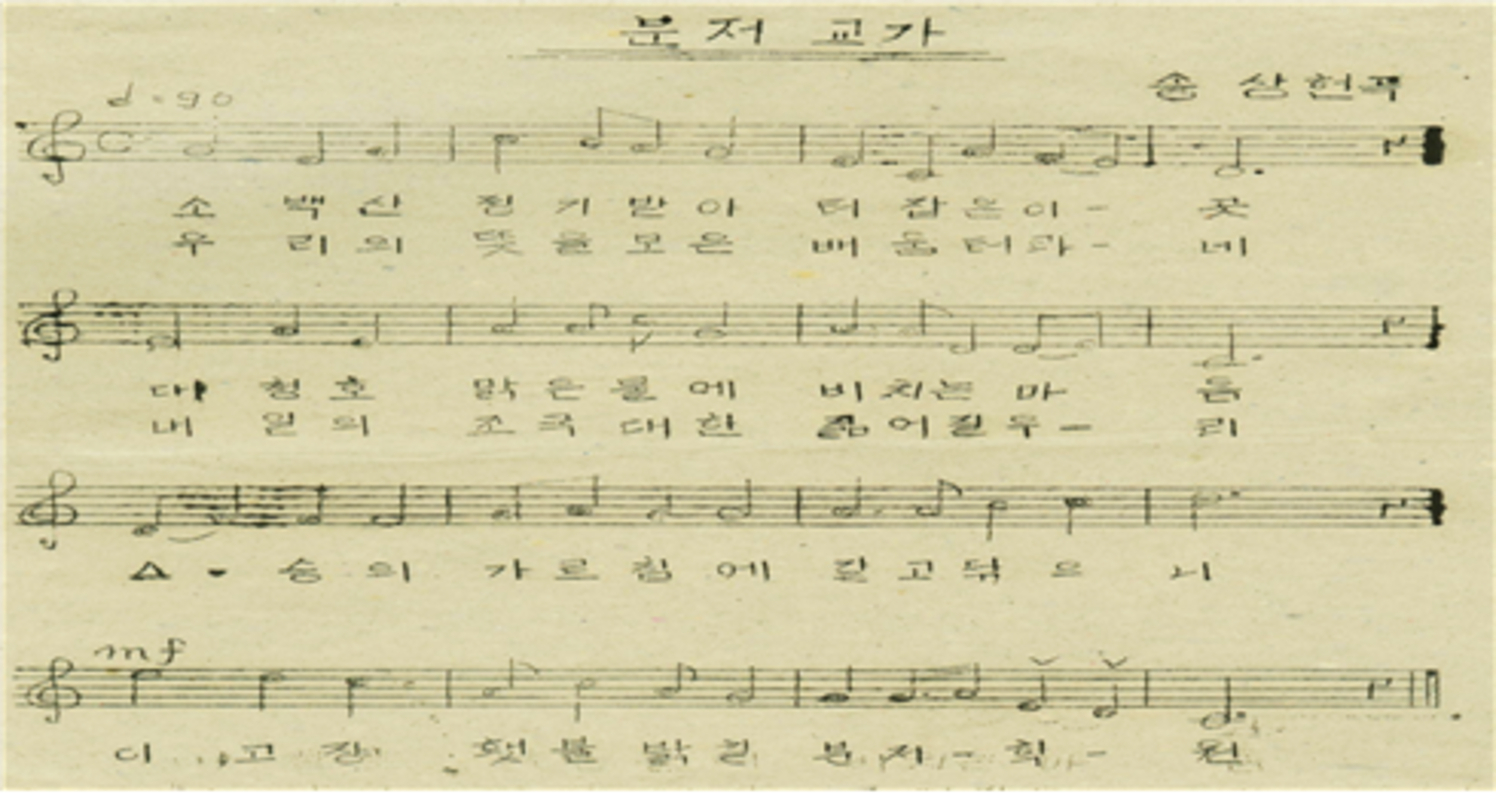 문저 교가
송 상헌곡
♩=90
소 백 산 정 기 받 아 터 잡 은 이 - 곳
우 리 의 뜻 을 모 은 배 움 터 라 - 네
대 청 호 맑 은 물 에 비 치 는 마 음
내 일 의 조 국 대 한 짊 어 질 우 - 리
스 승 의 가 르 침 에 갈 고 닦 으 니
mf
이 고 장 횃 불 밝 힐 문 저 - 학 - 원